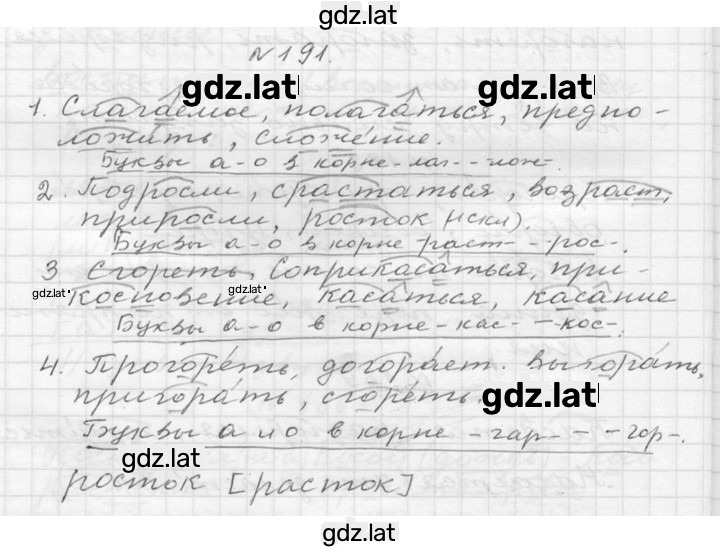 gdz.lat
№191.
gdz.lat gdz.lat
1. Слагаемое, полагаться, предпо-
ложить, сложение.
Буквы а-о в корне -лаг- -лож-
2. Подросли, срастаться, возраст,
приросли, росток (искл).
Буквы а-о в корне раст- - рос-.
3 Сгореть, Соприкасаться, при-
gdz.lat gdz.lat
косновение, касаться, касание
Буквы а-о в корне -кас- -кос-.
4. Прогореть, догорает. выгорать,
пригорать, сгореть. gdz.lat
Буквы а и о в корне -гар- - -гор-.
gdz.lat
росток [расток]
gdz.lat